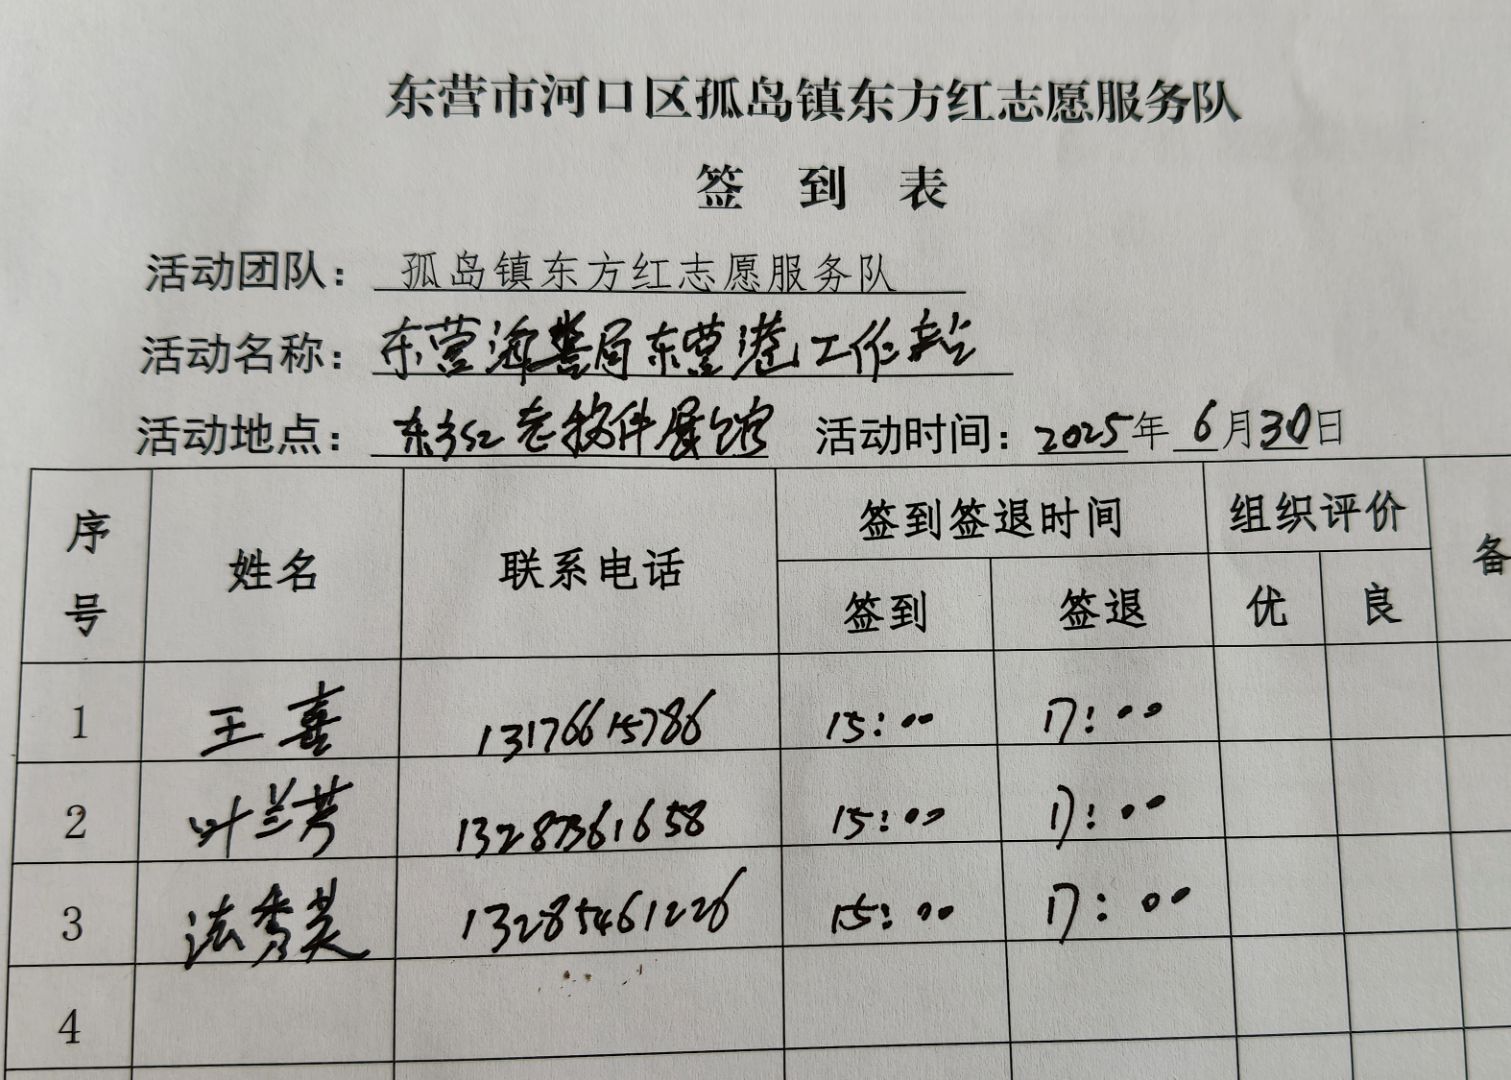 东营市河口区孤岛镇东方红志愿服务队
签 到 表
活动团队： 孤岛镇东方红志愿服务队
活动名称： 东营海警局东营港工作站
活动地点： 东方红老物件展馆 活动时间：2025年 6月30日
序号 姓名 联系电话 签到签退时间 组织评价 备
签到 签退 优 良
1 王喜 13176615786 15:00 17:00
2 叶兰芳 13287361658 15:00 17:00
3 法秀英 13285461226 15:00 17:00
4